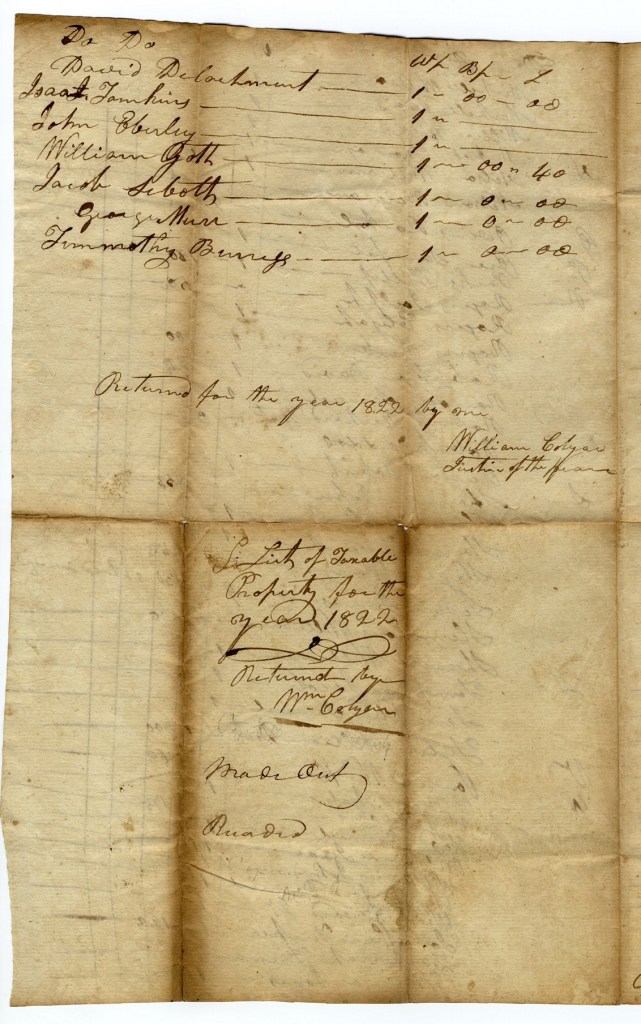 Do Do
David Delachment — Wp Bp L
1 — 00 — 00
Isaac Tomkins — 1 "
John Eberley — 1 "
William Goth — 1 — 00 " 40
Jacob Seboth — 1 — 0 — 00
George Murr — 1 — 0 — 00
Timmothy Burress — 1 — 0 — 00
Returnd for the year 1822 by me
William Colyar
Justice of the peace
List of Taxable
Property for the
year 1822
Returnd by
Wm Colyar
Made Out